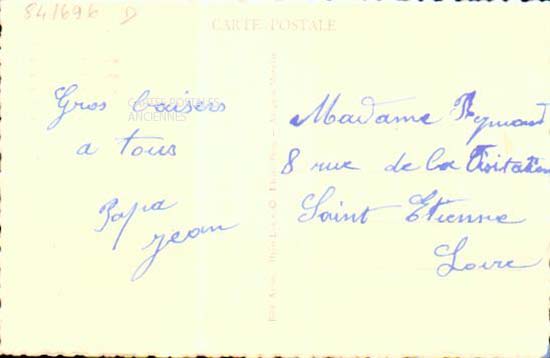 54/696 D
CARTE POSTALE
Gros baisers
a tous
Papa
Jean
CARTES POSTALES
ANCIENNES
Madame
8 rue de la Visitation
Saint Etienne
Loire